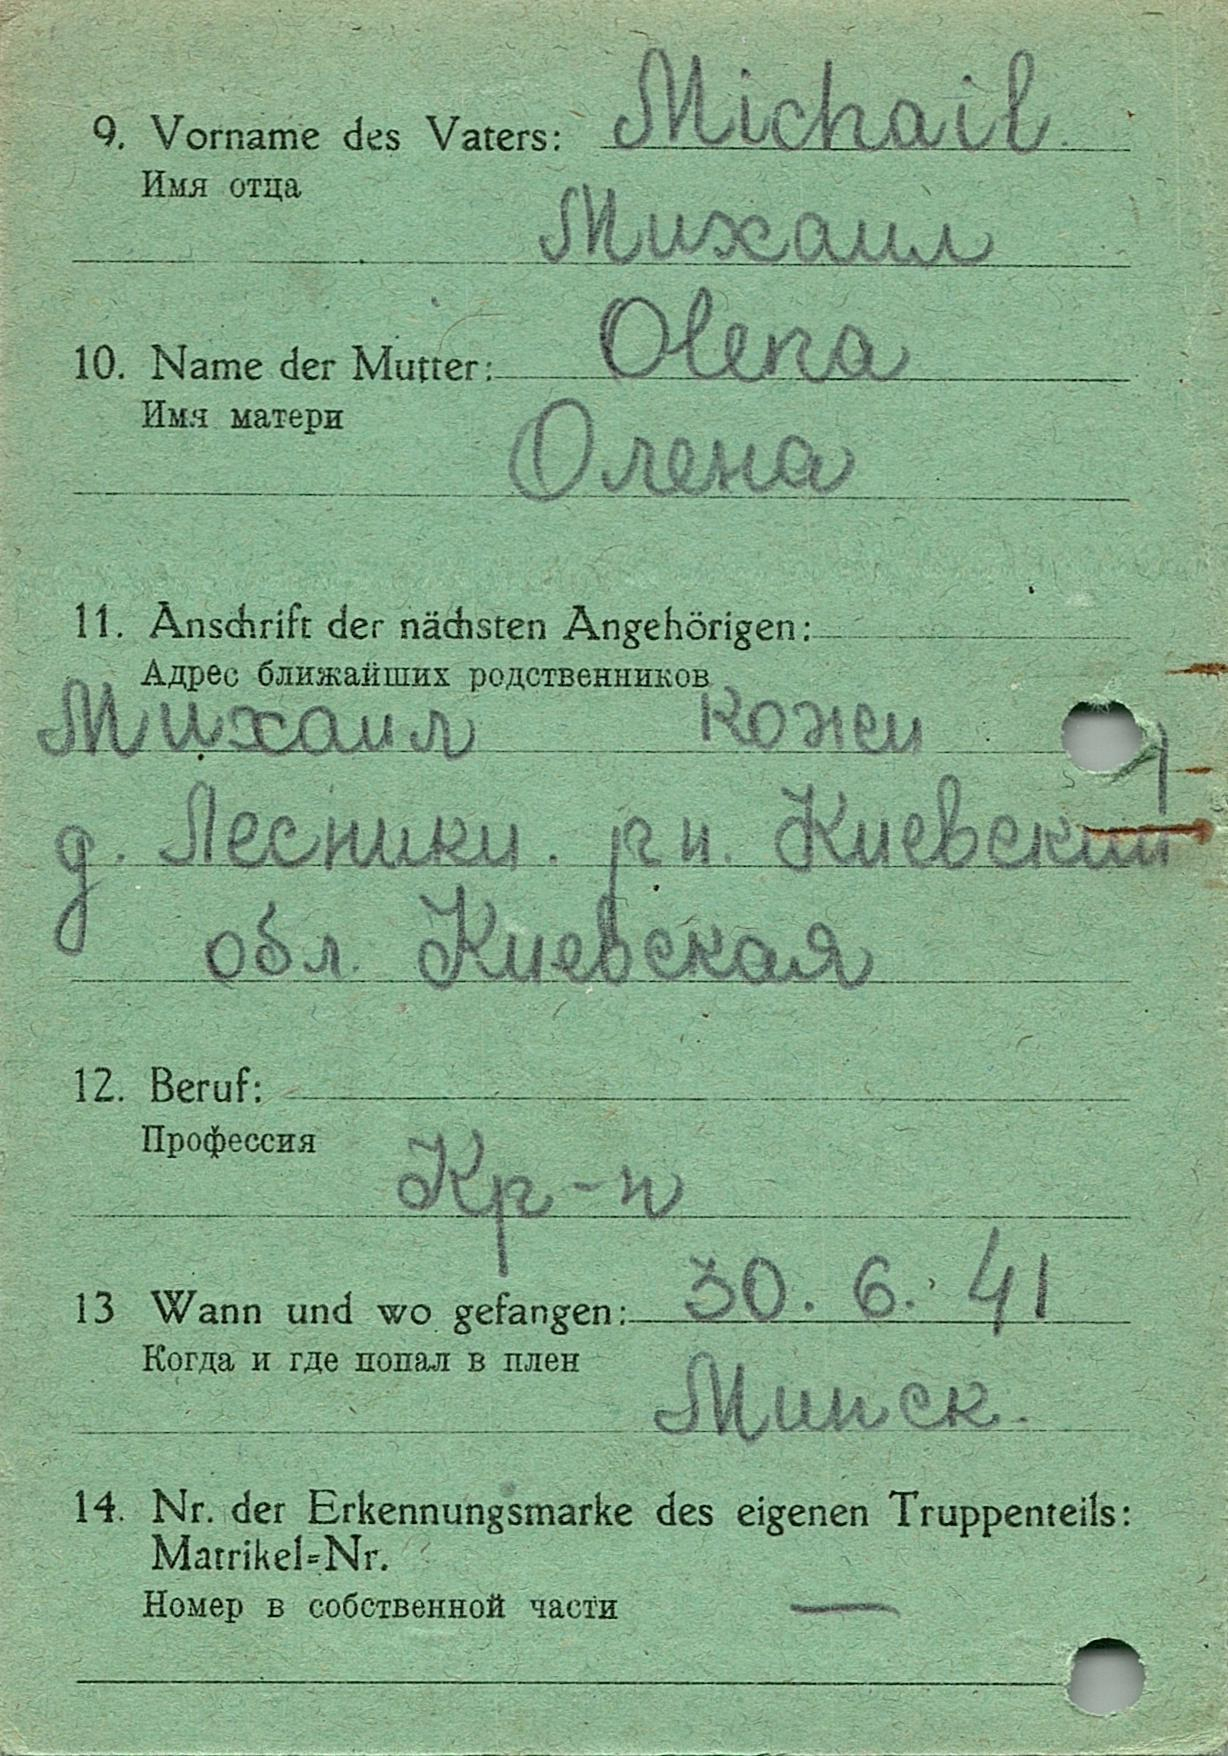 9. Vorname des Vaters: Michail
Имя отца
Михаил
10. Name der Mutter: Olena
Имя матери
Олена
11. Anschrift der nächsten Angehörigen:
Адрес ближайших родственников
Михаил
д. Лесники. р н. Киевский
обл. Киевская
12. Beruf:
Профессия
Кр-н
13 Wann und wo gefangen: 30. 6. 41
Когда и где попал в плен
Минск.
14. Nr. der Erkennungsmarke des eigenen Truppenteils:
Matrikel=Nr.
Номер в собственной части —